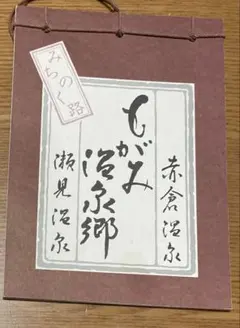 みちのく路
赤倉温泉
もがみ
温泉郷
瀬見温泉